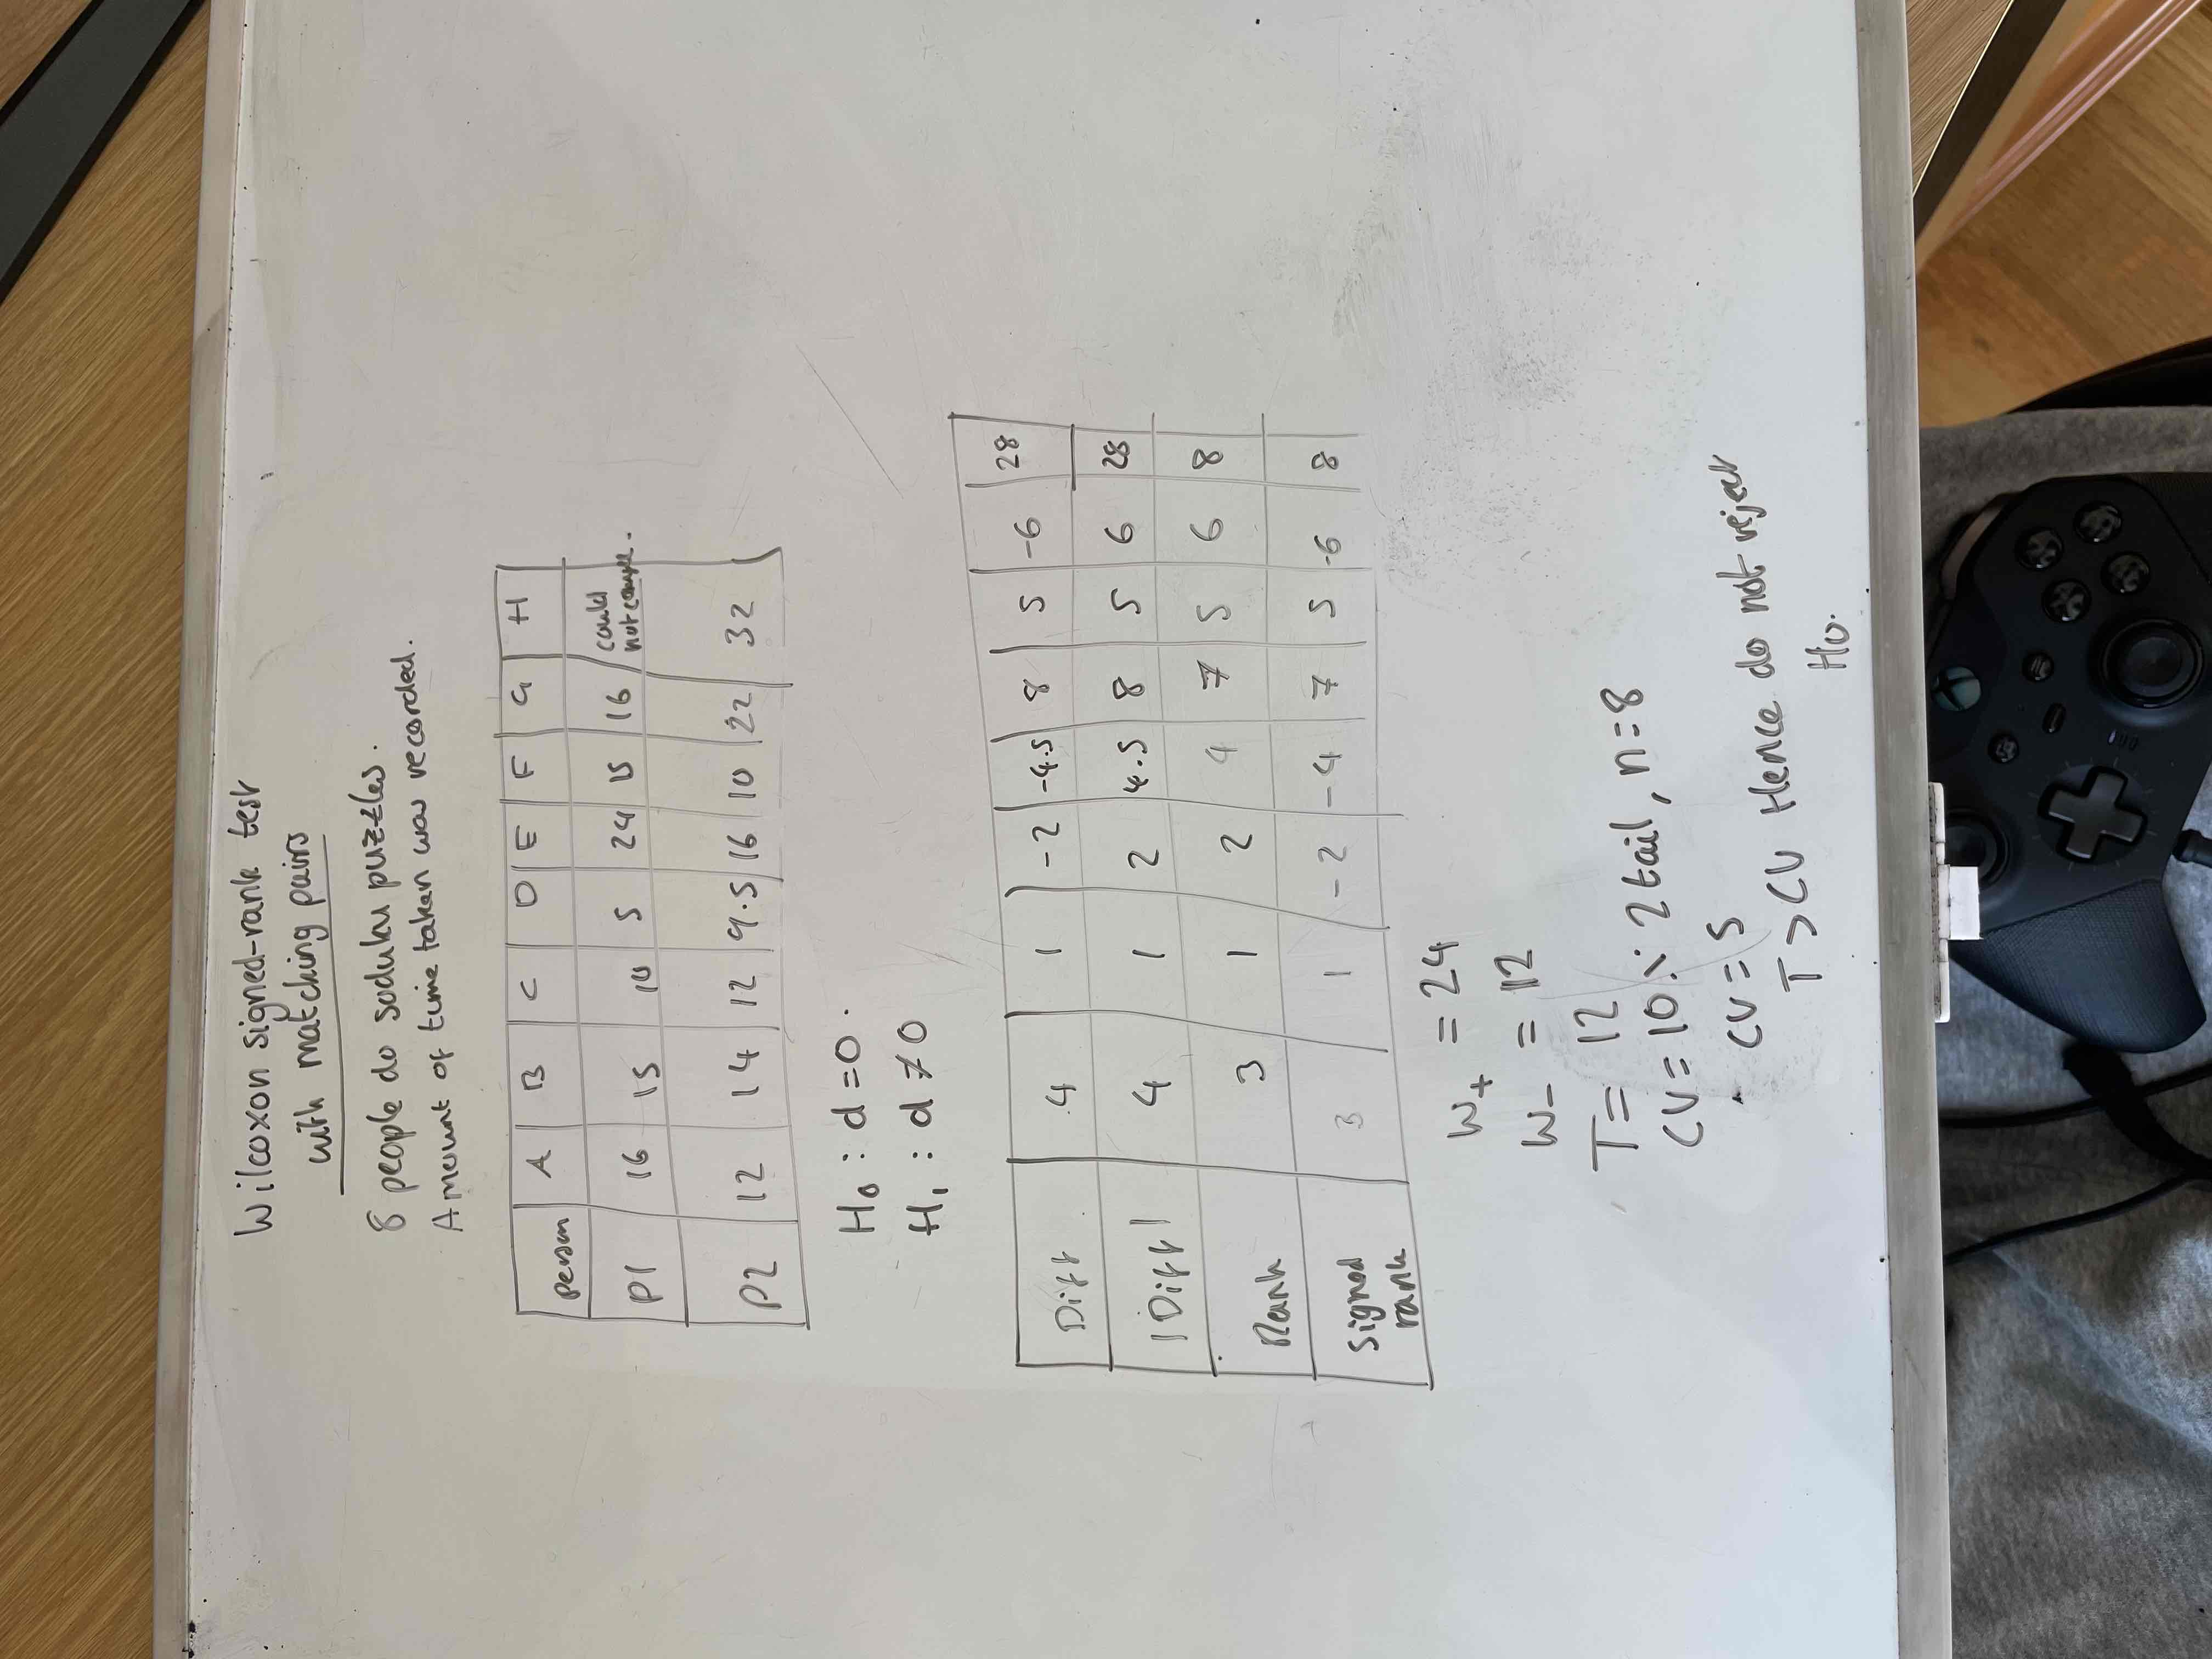 Wilcoxon signed-rank test
with matching pairs
8 people do soduku puzzles.
Amount of time taken was recorded.
person A B C D E F G H
P1 16 15 10 5 24 15 16 could
not
P2 12 14 12 9.5 16 10 22 32
H₀ : d = 0.
H₁ : d ≠ 0
Diff 4 1 -2 -4.5 8 5 -6 28
|Diff| 4 1 2 4.5 8 5 6 28
Rank 3 1 2 4 7 5 6 8
Signed 3 1 -2 -4 7 5 -6 8
rank
W₊ = 24
W₋ = 12
T = 12
CV = 10% 2 tail, n = 8
CV = 5
T > CV Hence do not reject
H₀.